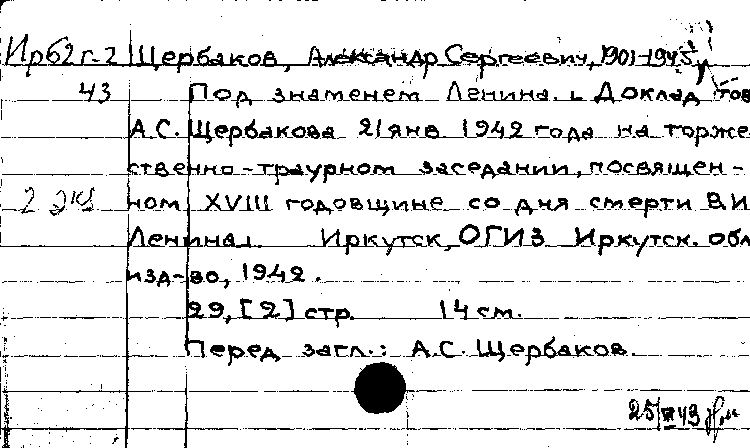 Ирб2г-2 Щербаков, Александр Сергеевич, 1901-1945
43 Под знаменем Ленина. Доклад тов
А.С. Щербакова 21 янв 1942 года на торже
ственно-траурном заседании, посвящен-
2 экз ном XVIII годовщине со дня смерти В.И
Ленина. Иркутск, ОГИЗ Иркутск. обл
изд-во, 1942.
29, [2] стр. 14 см.
Перед загл.: А.С. Щербаков.
25/III 49